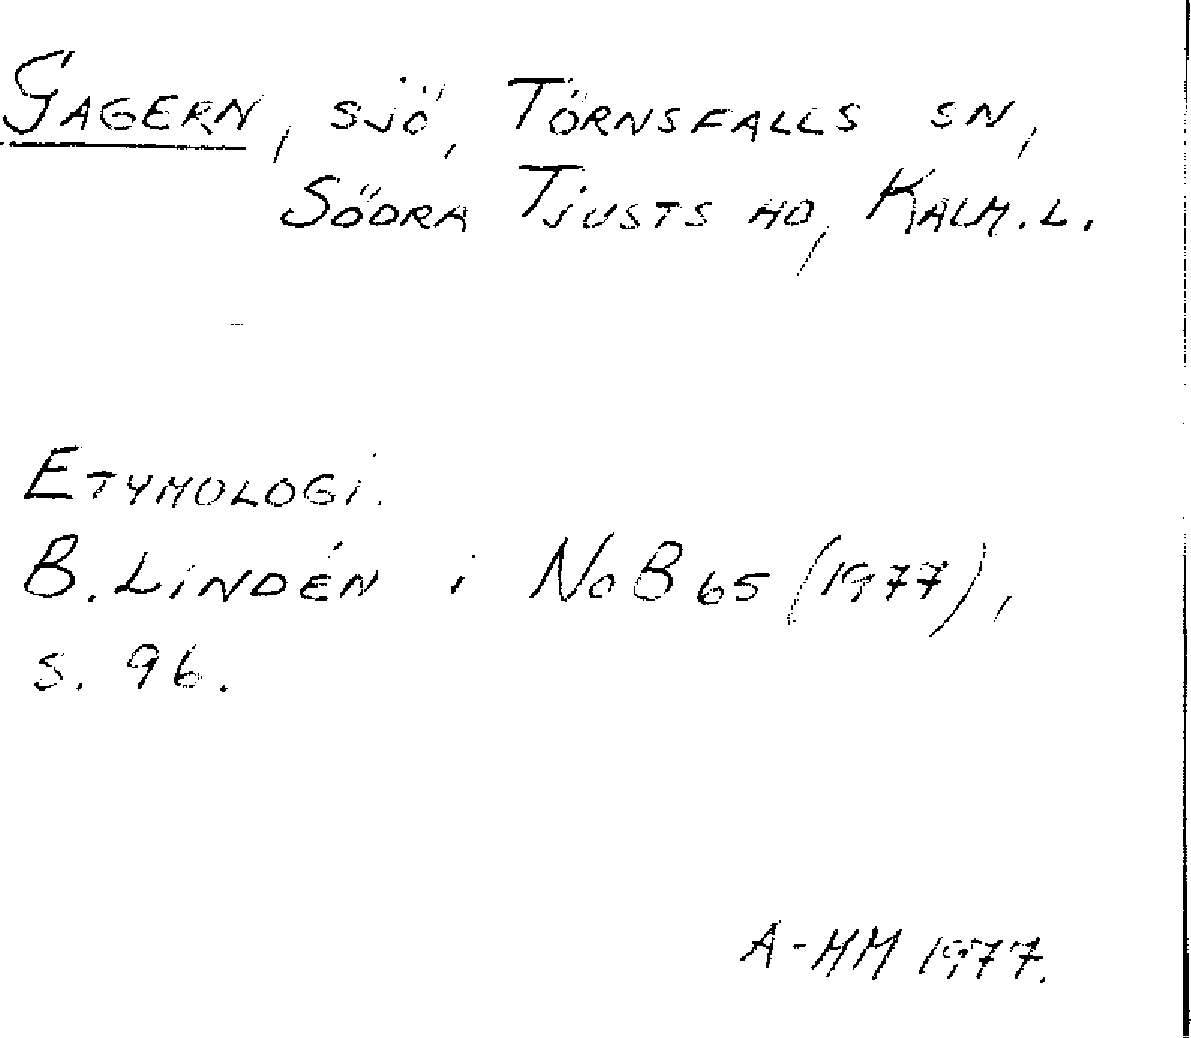 GAGERN, SJÖ, TÖRNSFALLS SN,
SÖDRA TJUSTS HD, KALM. L.
ETYMOLOGI.
B. LINDÉN i NoB 65 (1977),
S. 96.
A-MM 1977.